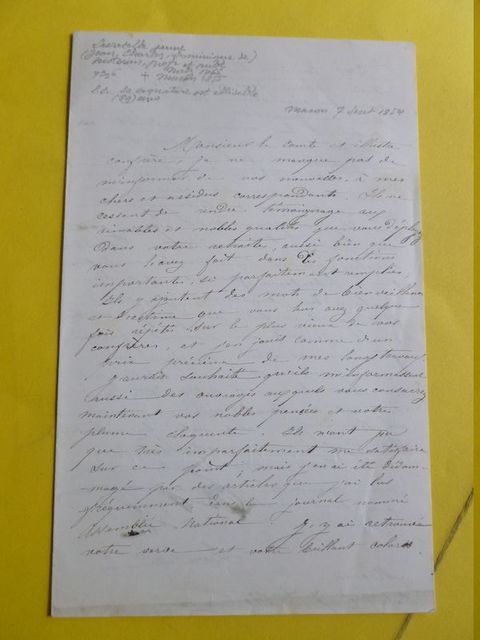 Lacretelle jeune
(Jean Charles Dominique de)
historien, prof et
Metz 1766
+ Macon 1855
L.s. sa signature est illisible
Macon 7 Sept 1854
Monsieur le comte et illustre
confrère, je ne manque pas de
m'informer de vos nouvelles à mes
chers et assidus correspondants. Ils ne
cessent de rendre témoignage aux
aimables et nobles qualités que vous déployez
dans votre retraite, aussi bien que
vous l'avez fait dans des fonctions
importantes, si parfaitement remplies.
Ils y ajoutent des mots de bienveillance
et d'estime que vous leur avez quelque
fois répétés sur le plus vieux de vos
confrères et j'en jouis comme d'un
prix précieux de mes longs travaux.
J'aurois souhaité qu'ils m'informassent
aussi des ouvrages auxquels vous consacrez
maintenant vos nobles pensées et votre
plume éloquente. Ils n'ont pu
que très imparfaitement me satisfaire
sur ce point, mais j'en ai été dédom-
magé par des articles que j'ai lus
fréquemment dans le journal nommé
Assemblée National. J'y ai retrouvé
votre verve et votre brillant coloris